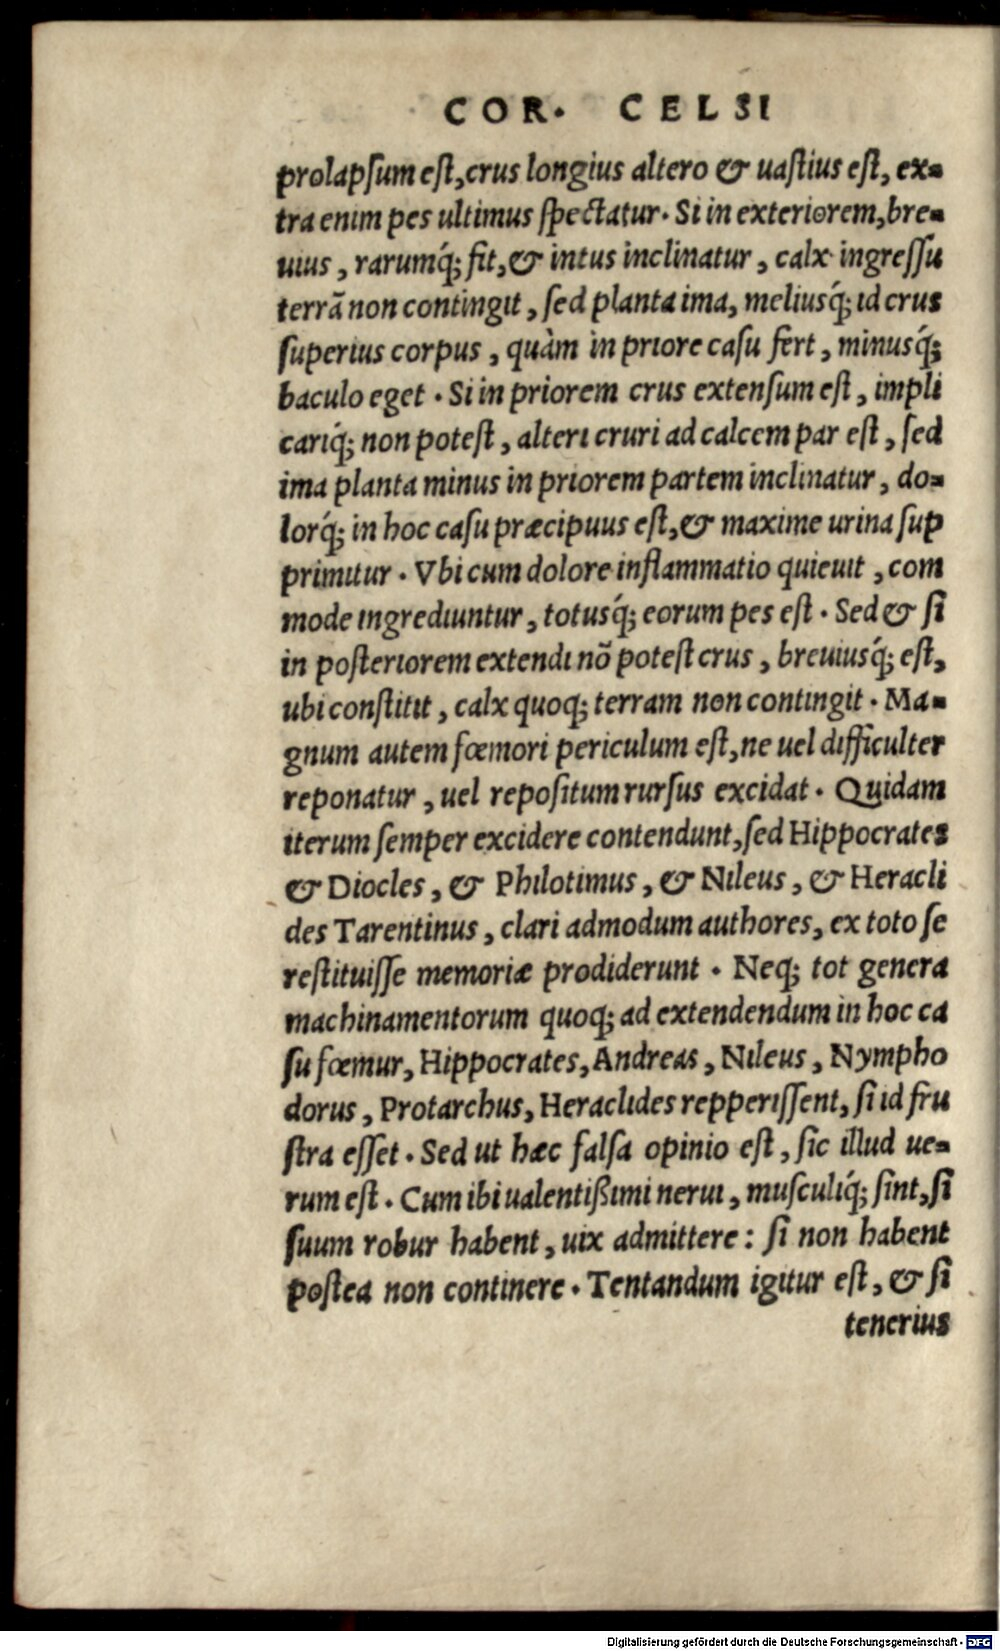 COR. CELSI
prolapſum eſt, crus longius altero & uaſtius eſt, ex-
tra enim pes ultimus ſpectatur. Si in exteriorem, bre-
uius, rarumq́; fit, & intus inclinatur, calx ingreſſu
terrã non contingit, ſed planta ima, meliusq́; id crus
ſuperius corpus, quàm in priore caſu fert, minusq́;
baculo eget. Si in priorem crus extenſum eſt, impli
cariq́; non poteſt, alteri cruri ad calcem par eſt, ſed
ima planta minus in priorem partem inclinatur, do-
lorq́; in hoc caſu præcipuus eſt, & maxime urina ſup
primitur. Vbi cum dolore inflammatio quieuit, com
mode ingrediuntur, totusq́; eorum pes eſt. Sed & ſi
in poſteriorem extendi nõ poteſt crus, breuiusq́; eſt,
ubi conſtitit, calx quoq; terram non contingit. Ma-
gnum autem fœmori periculum eſt, ne uel difficulter
reponatur, uel repoſitum rurſus excidat. Quidam
iterum ſemper excidere contendunt, ſed Hippocrates
& Diocles, & Philotimus, & Nileus, & Heracli
des Tarentinus, clari admodum authores, ex toto ſe
reſtituiſſe memoriæ prodiderunt. Neq; tot genera
machinamentorum quoq; ad extendendum in hoc ca
ſu fœmur, Hippocrates, Andreas, Nileus, Nympho
dorus, Protarchus, Heraclides repperiſſent, ſi id fru
ſtra eſſet. Sed ut hæc falſa opinio eſt, ſic illud ue-
rum eſt. Cum ibi ualentißimi nerui, muſculiq́; ſint, ſi
ſuum robur habent, uix admittere: ſi non habent
poſtea non continere. Tentandum igitur eſt, & ſi
tenerius
Digitalisierung gefördert durch die Deutsche Forschungsgemeinschaft - DFG